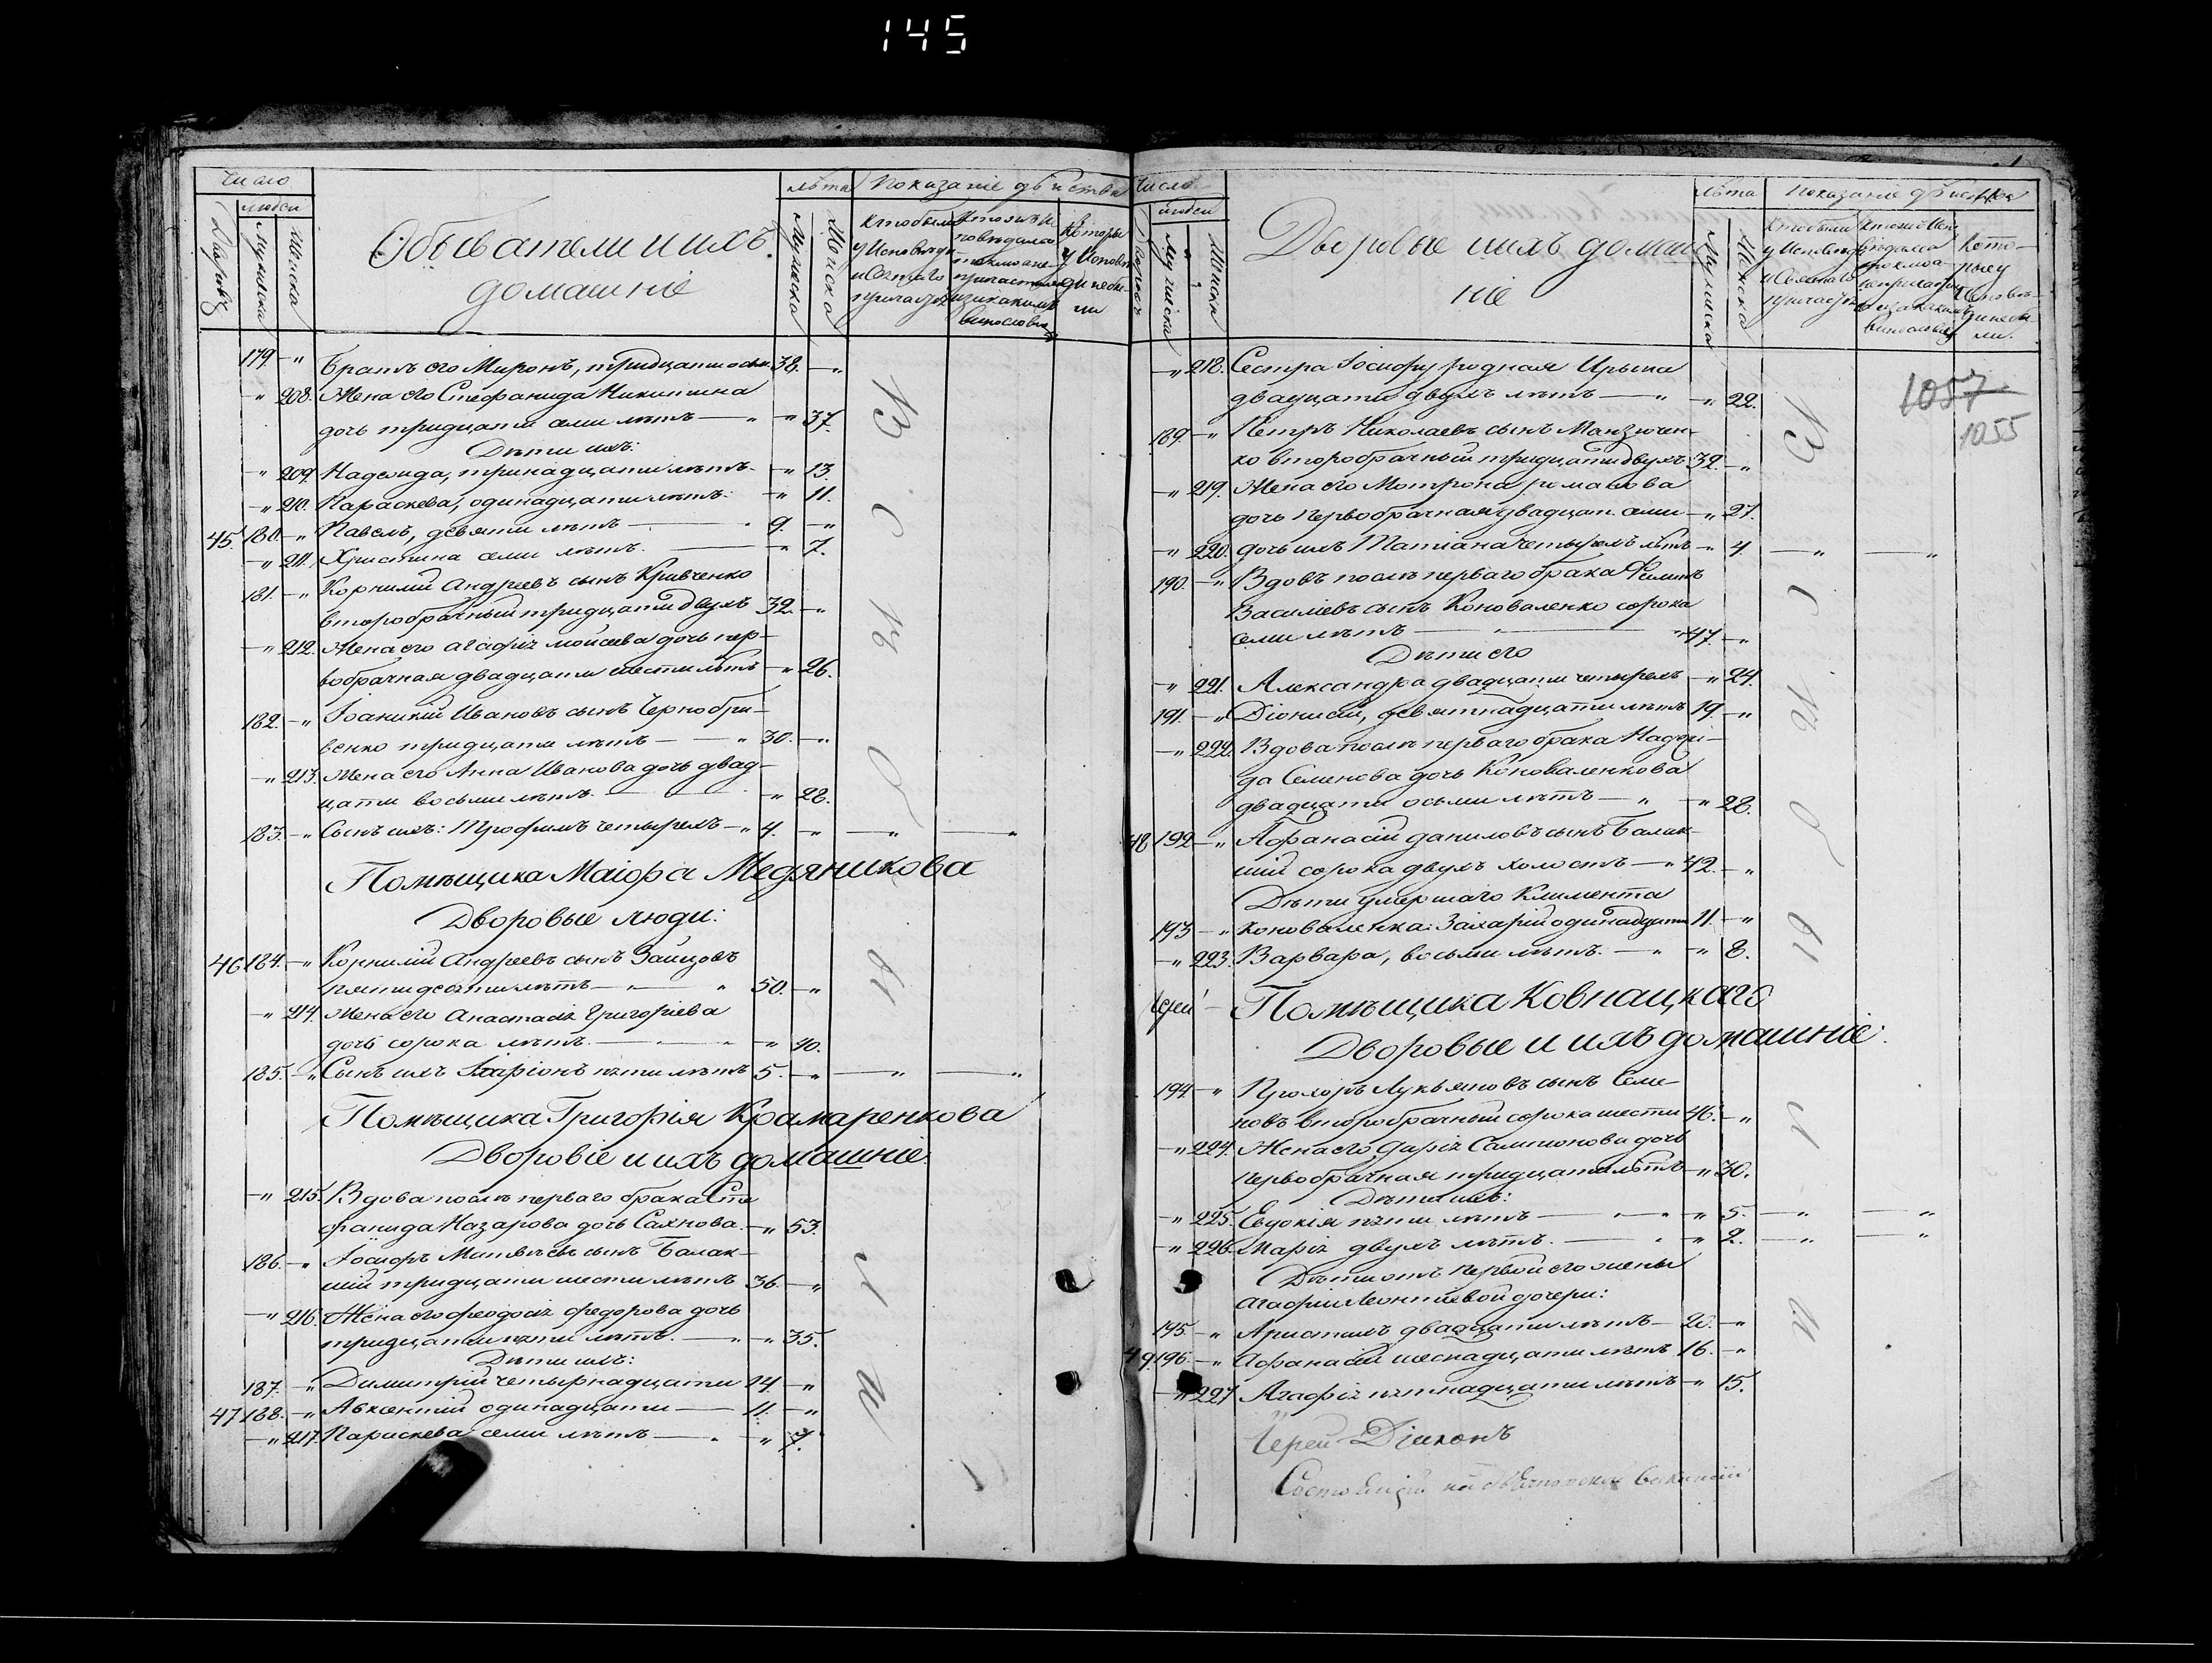 145
Число
людей
Дворовъ
Мужеска
Женска
Обыватели и ихъ
домашніе
лѣта
Мужеска
Женска
Показаніе дѣйства
Кто были
у Исповѣди
и Святаго
причастія
179. Братъ его Миронъ, тридцати осьми 38.
208. Жена его Стефанида Никитина
дочь тридцати семи лѣтъ 37.
Дѣти ихъ:
209. Надежда, тринадцати лѣтъ 13
210. Параскева, одинадцати лѣтъ 11.
45. 180. Павелъ, девяти лѣтъ 9.
211. Христина семи лѣтъ 7.
181. Корнилій Андреевъ сынъ Кривченко
второбрачный тридцати двухъ 32.
212. Жена его Агафія Моисеева дочь пер-
вобрачная двадцати шести лѣтъ 26.
182. Іоаникій Ивановъ сынъ Чернобри-
венко тридцати лѣтъ 30.
213. Жена его Анна Иванова дочь двад-
цати восьми лѣтъ 28.
183. Сынъ ихъ: Трофимъ четырехъ 4.
Помѣщика Маіора Медяникова
Дворовые люди:
46 184. Корнилій Андреевъ сынъ Зайцовъ
пятидесяти лѣтъ 50.
214. Жена его Анастасія Григоріева
дочь сорока лѣтъ 40.
185. Сынъ ихъ Іларіонъ пяти лѣтъ 5.
Помѣщика Григорія Крамаренкова
Дворовіе и ихъ домашніе.
215. Вдова послѣ перваго брака Сте
фанида Назарова дочь Сахнова 53.
186. Іосифъ Матвѣевъ сынъ Балак-
шій тридцати шести лѣтъ 36.
216. Жена его Феодосія Федорова дочь
тридцати пяти лѣтъ 35.
Дѣти ихъ:
187. Димитрій четырнадцати 14.
47 188. Авксентій одинадцати 11.
217. Параскева семи лѣтъ 7.
Число
людей
Мужеска
Женска
Дворовые и ихъ домаш
ніе
лѣта
Мужеска
Женска
Показаніе дѣйства
1057
1055
218. Сестра Іосифу родная Ирина
двадцати двухъ лѣтъ 22.
189. Петръ Николаевъ сынъ Манзючен-
ко второбрачный тридцати двухъ 32.
219. Жена его Мотрона Романова
дочь первобрачная двадцат. семи 27.
220. Дочь ихъ Татіана четырехъ лѣтъ 4.
190. Вдовъ послѣ перваго брака Филипъ
Василіевъ сынъ Коноваленко сорока
семи лѣтъ 47.
Дѣти его
221. Александра двадцати четырехъ 24.
191. Діонисій, девятнадцати лѣтъ 19.
222. Вдова послѣ перваго брака Надеж-
да Семенова дочь Коноваленкова
двадцати осьми лѣтъ 28.
48 192 Афанасій Даниловъ сынъ Балак-
шій сорока двухъ холостъ 42.
Дѣти умершаго Климента
193 Коноваленка: Захарій одинадцати 11.
223. Варвара, восьми лѣтъ 8.
Іерей Помѣщика Ковнацкаго
Дворовые и ихъ домашніе:
194. Прохоръ Лукьяновъ сынъ Семе-
новъ второбрачный сорока шести 46.
224. Жена его Дарія Сампсонова дочь
первобрачная тридцати лѣтъ 30.
Дѣти ихъ:
225. Евдокія пяти лѣтъ 5.
226. Марія двухъ лѣтъ 2.
Дѣти отъ первой его жены
Агафіи Леонтіевой дочери:
195. Аристихъ двадцати лѣтъ 20.
49. 196. Афанасій шеснадцати лѣтъ 16.
227 Агафія пятнадцати лѣтъ 15.
Іерей Діаконъ